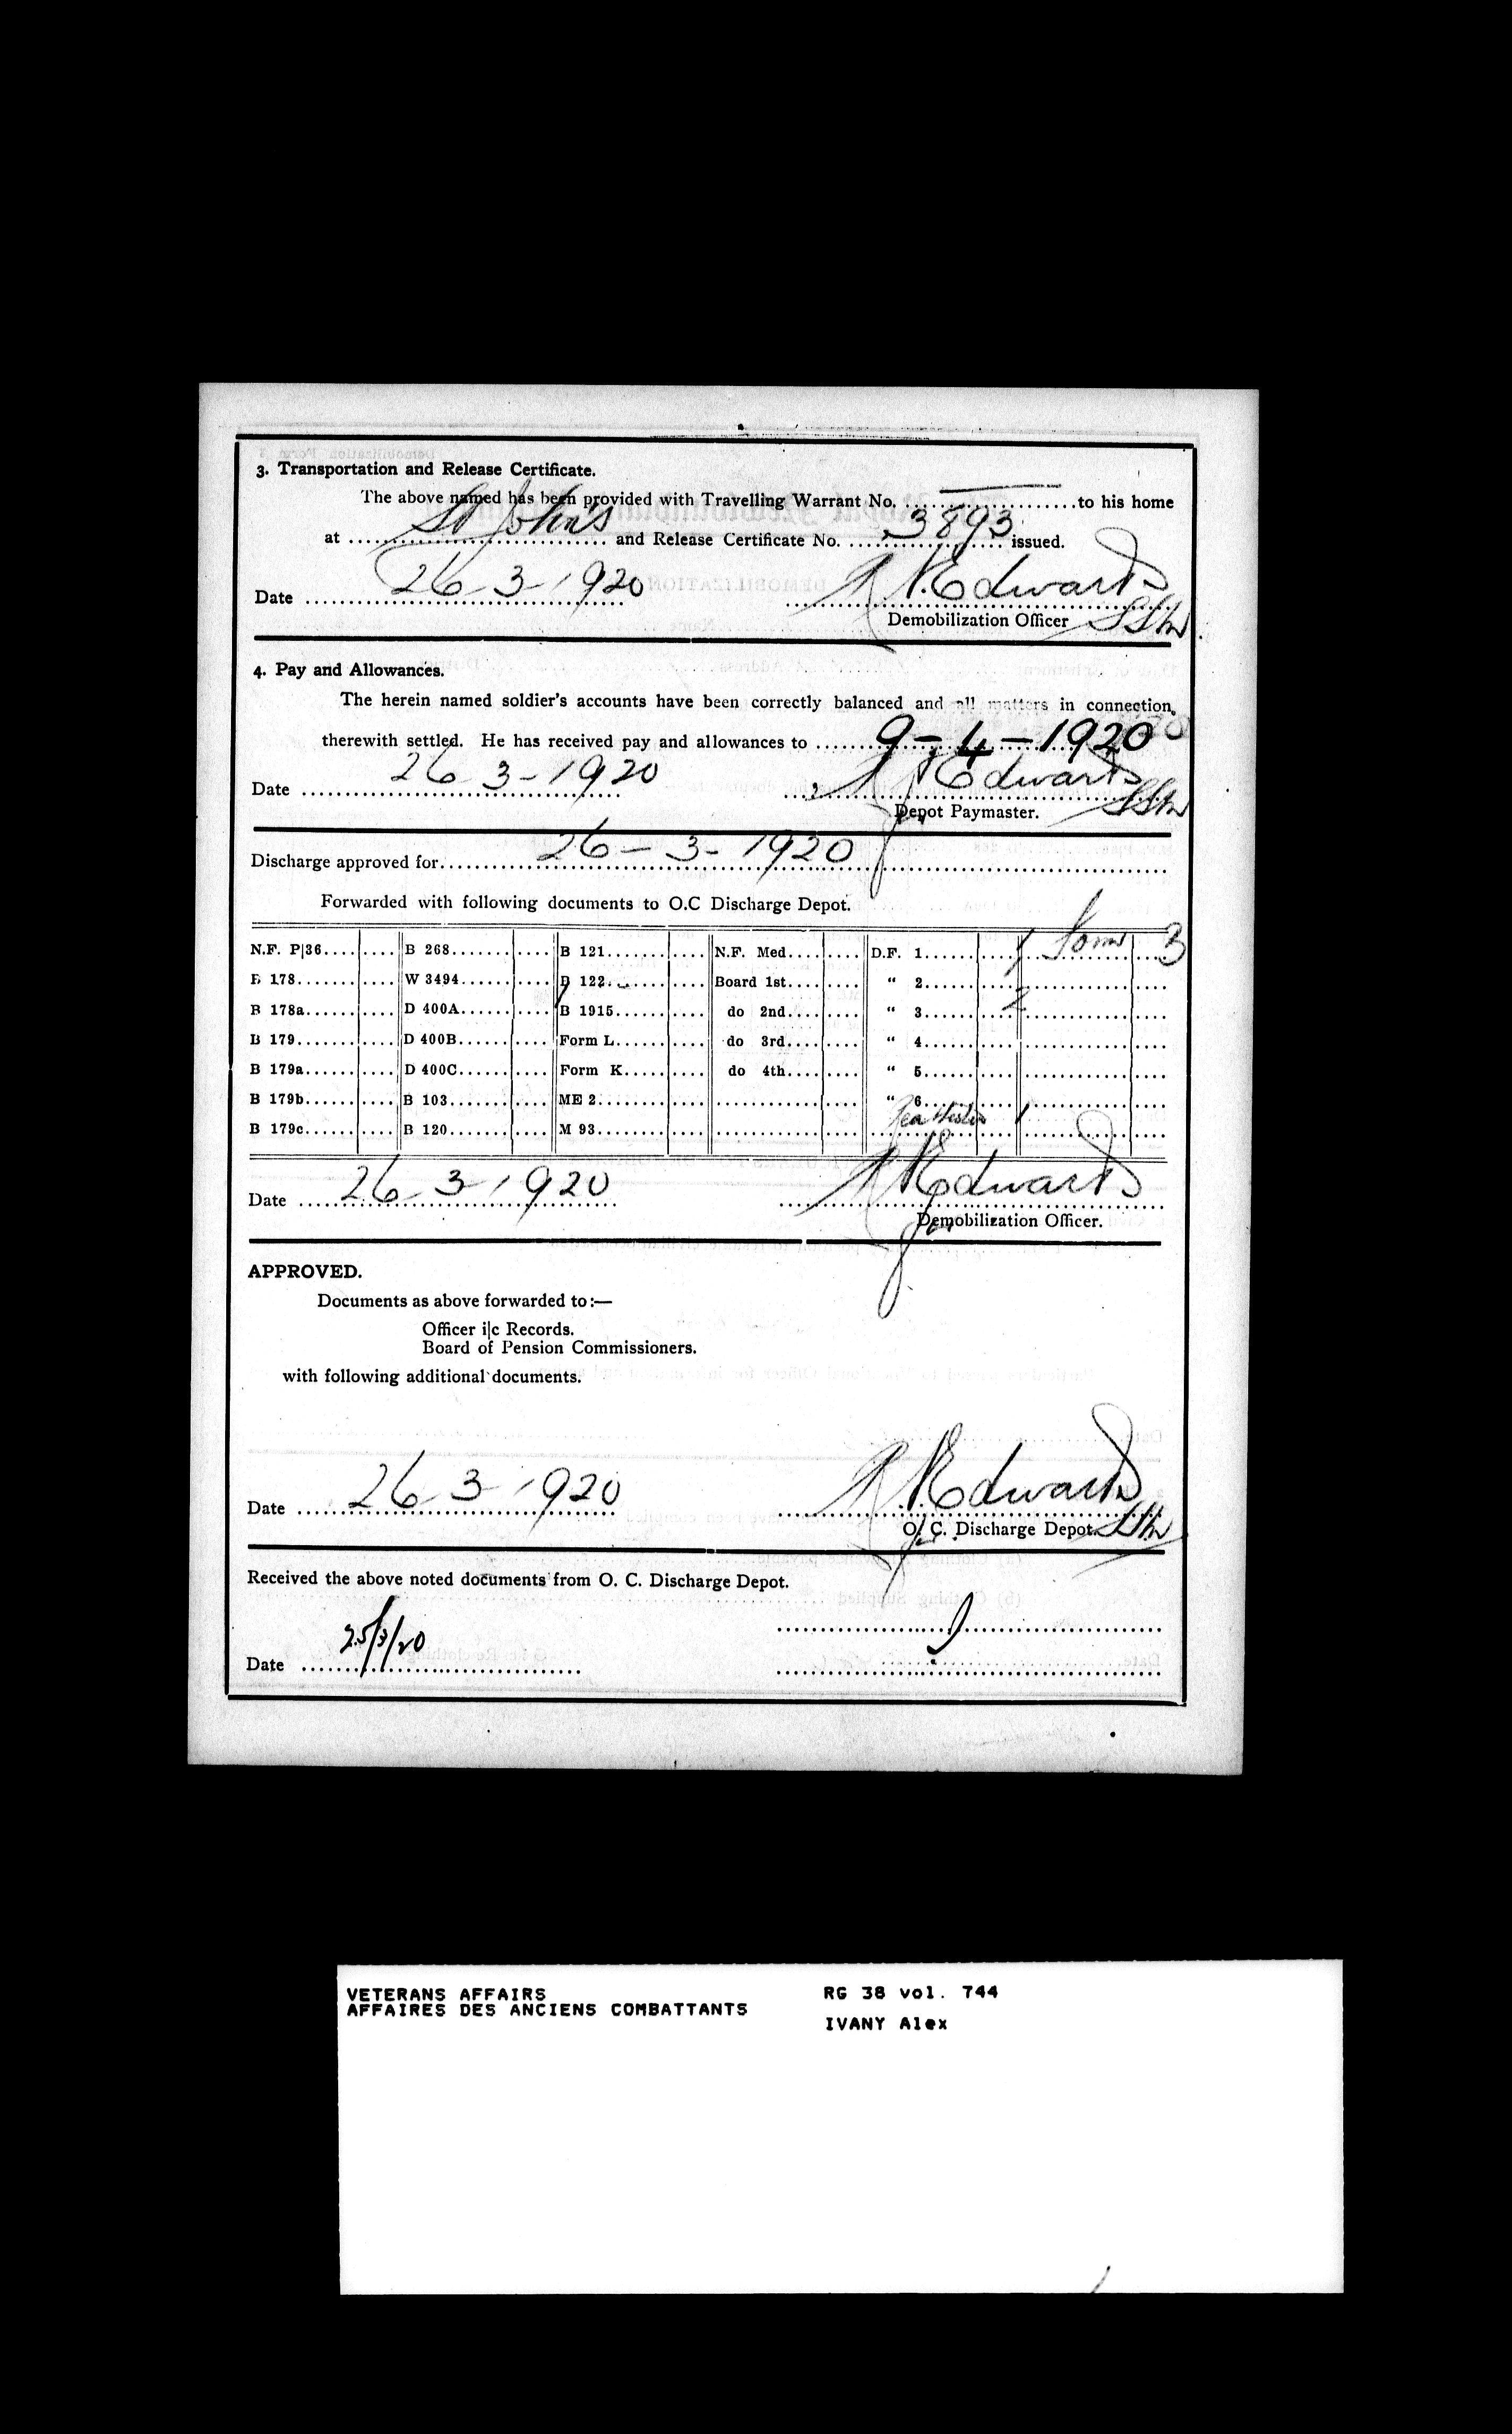 3. Transportation and Release Certificate.
The above named has been provided with Travelling Warrant No. .................... to his home
at St John's and Release Certificate No. 3893 issued.
Date 26-3-1920 Edwards
Demobilization Officer
4. Pay and Allowances.
The herein named soldier's accounts have been correctly balanced and all matters in connection,
therewith settled. He has received pay and allowances to 9-4-1920
Date 26-3-1920 Edwards
Depot Paymaster.
Discharge approved for 26-3-1920
Forwarded with following documents to O.C Discharge Depot.
N.F. P|36 B 268 B 121 N.F. Med. D.F. 1 1 3
B 178 W 3494 B 122 Board 1st " 2
B 178a D 400A B 1915 do 2nd " 3 2
B 179 D 400B Form L do 3rd " 4
B 179a D 400C Form K do 4th " 5
B 179b B 103 ME 2 " 6
B 179c B 120 M 93 1
Date 26-3-1920 Edwards
Demobilization Officer.
APPROVED.
Documents as above forwarded to:—
Officer i|c Records.
Board of Pension Commissioners.
with following additional documents.
Date 26-3-1920 Edwards
O. C. Discharge Depot.
Received the above noted documents from O. C. Discharge Depot.
Date 25/3/20
VETERANS AFFAIRS RG 38 vol. 744
AFFAIRES DES ANCIENS COMBATTANTS
IVANY Alex